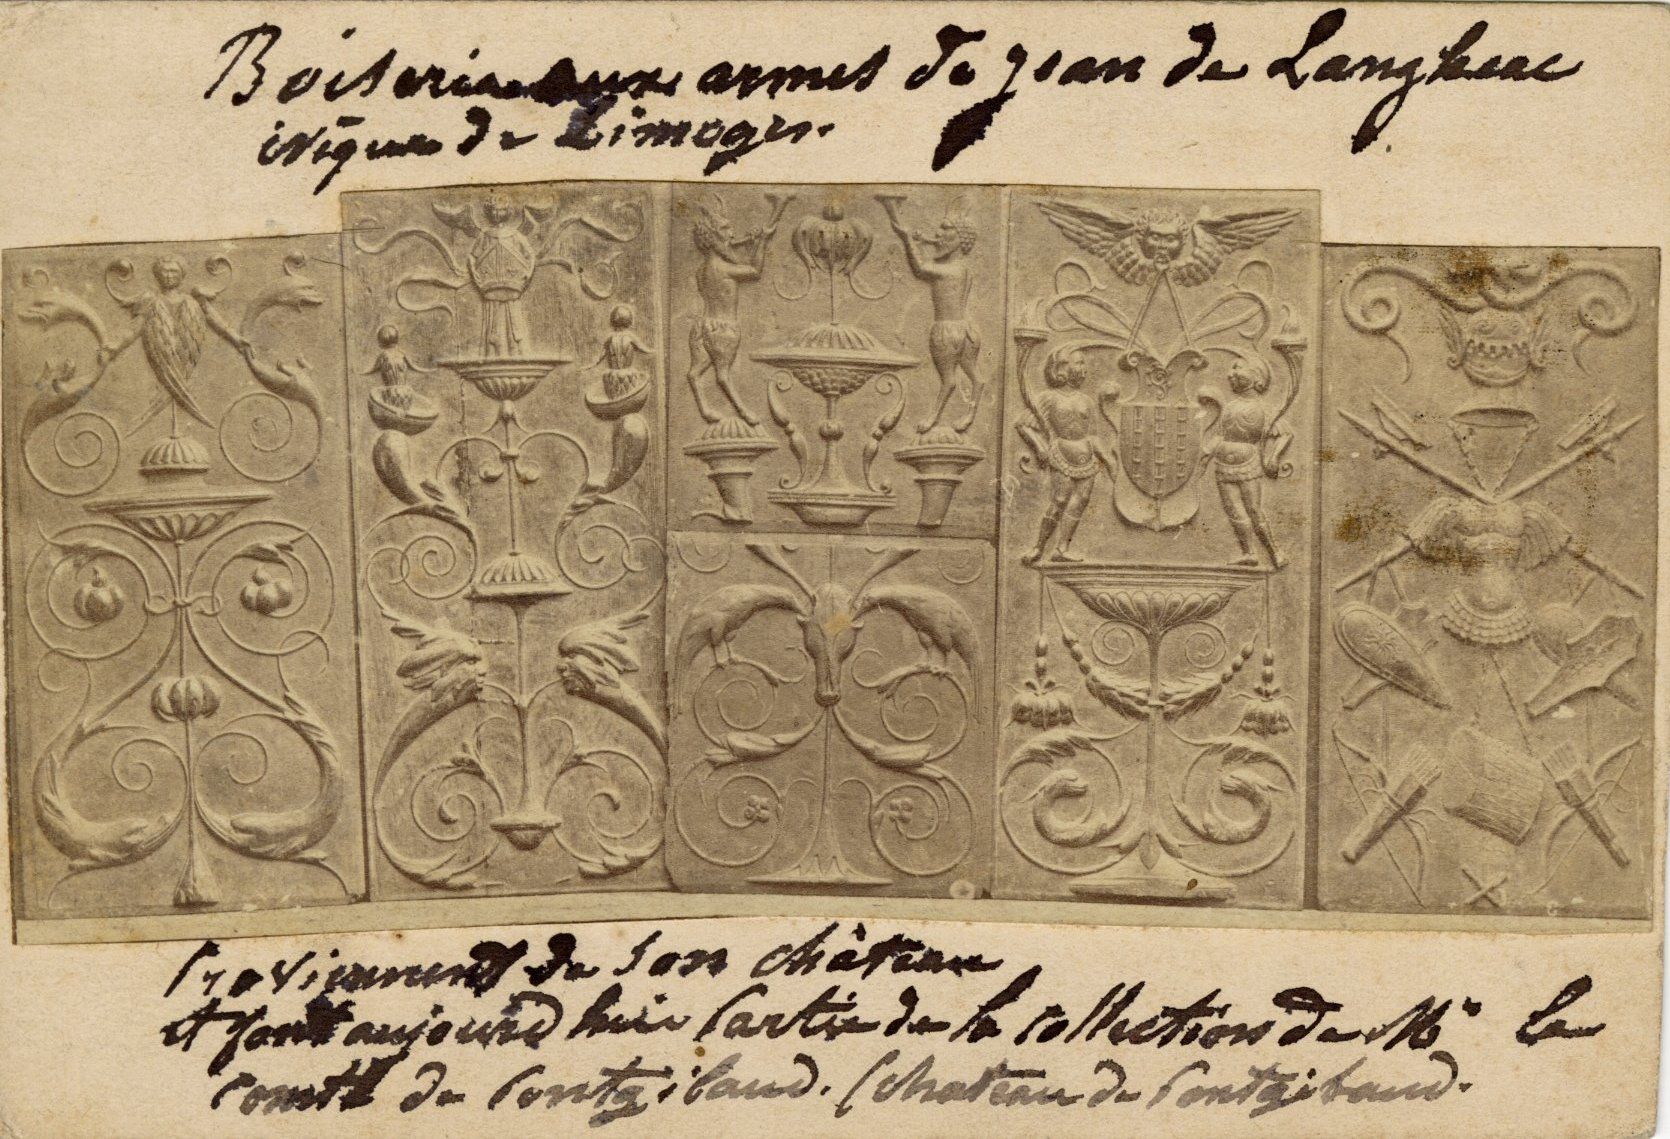 Boiserie aux armes de Jean de Langheac
évêque de Limoges.
Proviennent de son château
et font aujourd'hui Partie de la collection de Mr le
comte de Pontgibaud. (château de Pontgibaud.